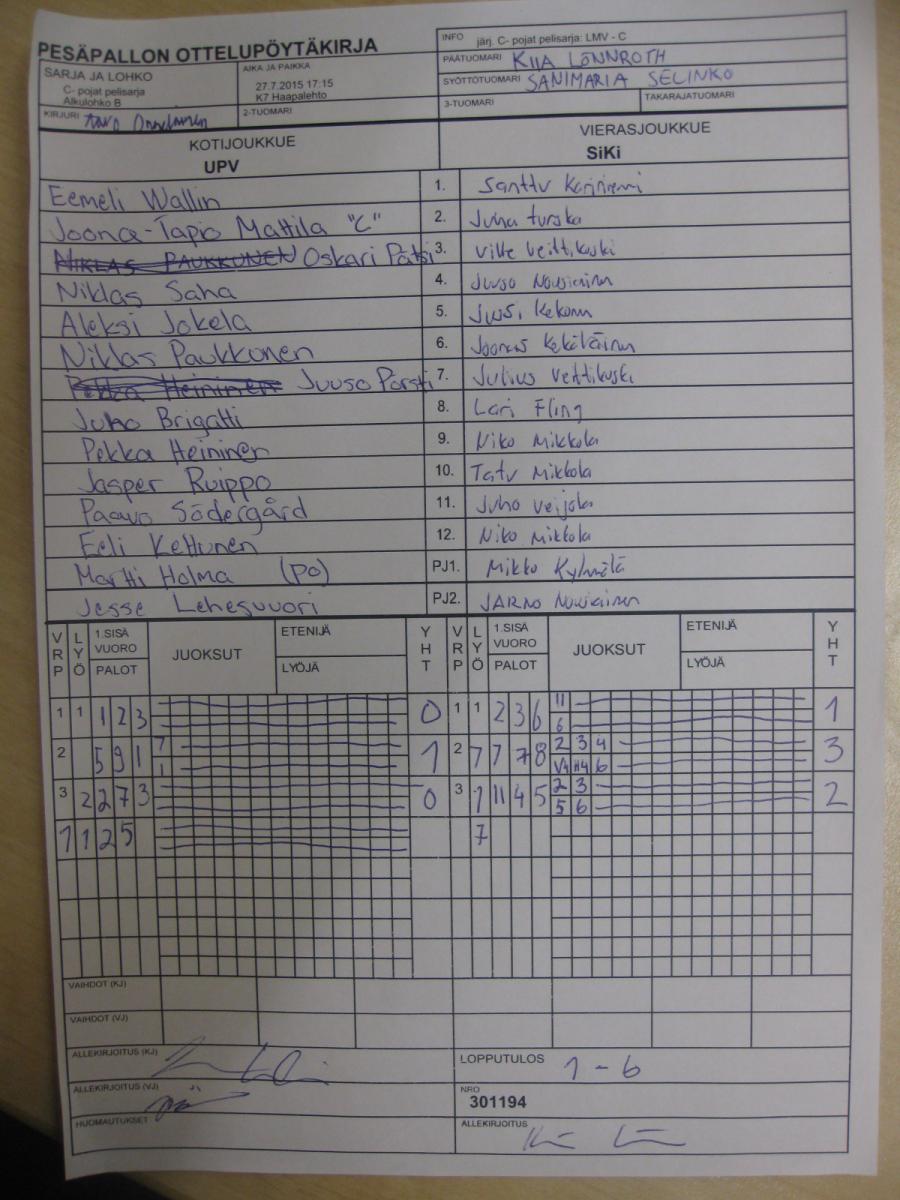 PESÄPALLON OTTELUPÖYTÄKIRJA
INFO järj. C- pojat pelisarja: LMV - C
PÄÄTUOMARI KIIA LÖNNROTH
SYÖTTÖTUOMARI SANIMARIA SELINKO
3-TUOMARI TAKARAJATUOMARI
SARJA JA LOHKO
C- pojat pelisarja
Alkulohko B
AIKA JA PAIKKA
27.7.2015 17:15
K7 Haapalehto
KIRJURI
2-TUOMARI
KOTIJOUKKUE
UPV
VIERASJOUKKUE
SiKi
Eemeli Wallin 1. Santtu
Joona-Tapio Mattila "C" 2. Juha Turska
NIKLAS PAUKKUNEN Oskari Pätsi 3. Ville Veittikoski
Niklas Saha 4. Juuso Nousiainen
Aleksi Jokela 5. Jussi Kekonn
Niklas Paukkunen 6. Joonas Kekäläinen
Pekka Heininen Juuso Pörsti 7. Julius Veittikoski
Juho Brigatti 8. Lari Fling
Pekka Heininen 9. Niko Mikkola
Jasper Ruippo 10. Tatu Mikkola
Paavo Södergård 11. Juho Veijola
Eeli Kettunen 12. Niko Mikkola
Martti Holma (PO) PJ1. Mikko Kylmälä
Jesse Lehesvuori PJ2. JARNO Nousiainen
VRP LYÖ 1.SISÄ VUORO PALOT JUOKSUT ETENIJÄ LYÖJÄ YHT VRP LYÖ 1.SISÄ VUORO PALOT JUOKSUT ETENIJÄ LYÖJÄ YHT
1 1 1 2 3 0 1 1 2 3 6 11 1
6
2 5 9 1 7 1 2 7 7 7 8 2 3 4 3
1 V4 H4 6
3 2 2 7 3 0 3 1 11 4 5 2 3 2
5 6
1 1 2 5 7
VAIHDOT (KJ)
VAIHDOT (VJ)
ALLEKIRJOITUS (KJ)
LOPPUTULOS 1 - 6
ALLEKIRJOITUS (VJ)
NRO
301194
HUOMAUTUKSET
ALLEKIRJOITUS